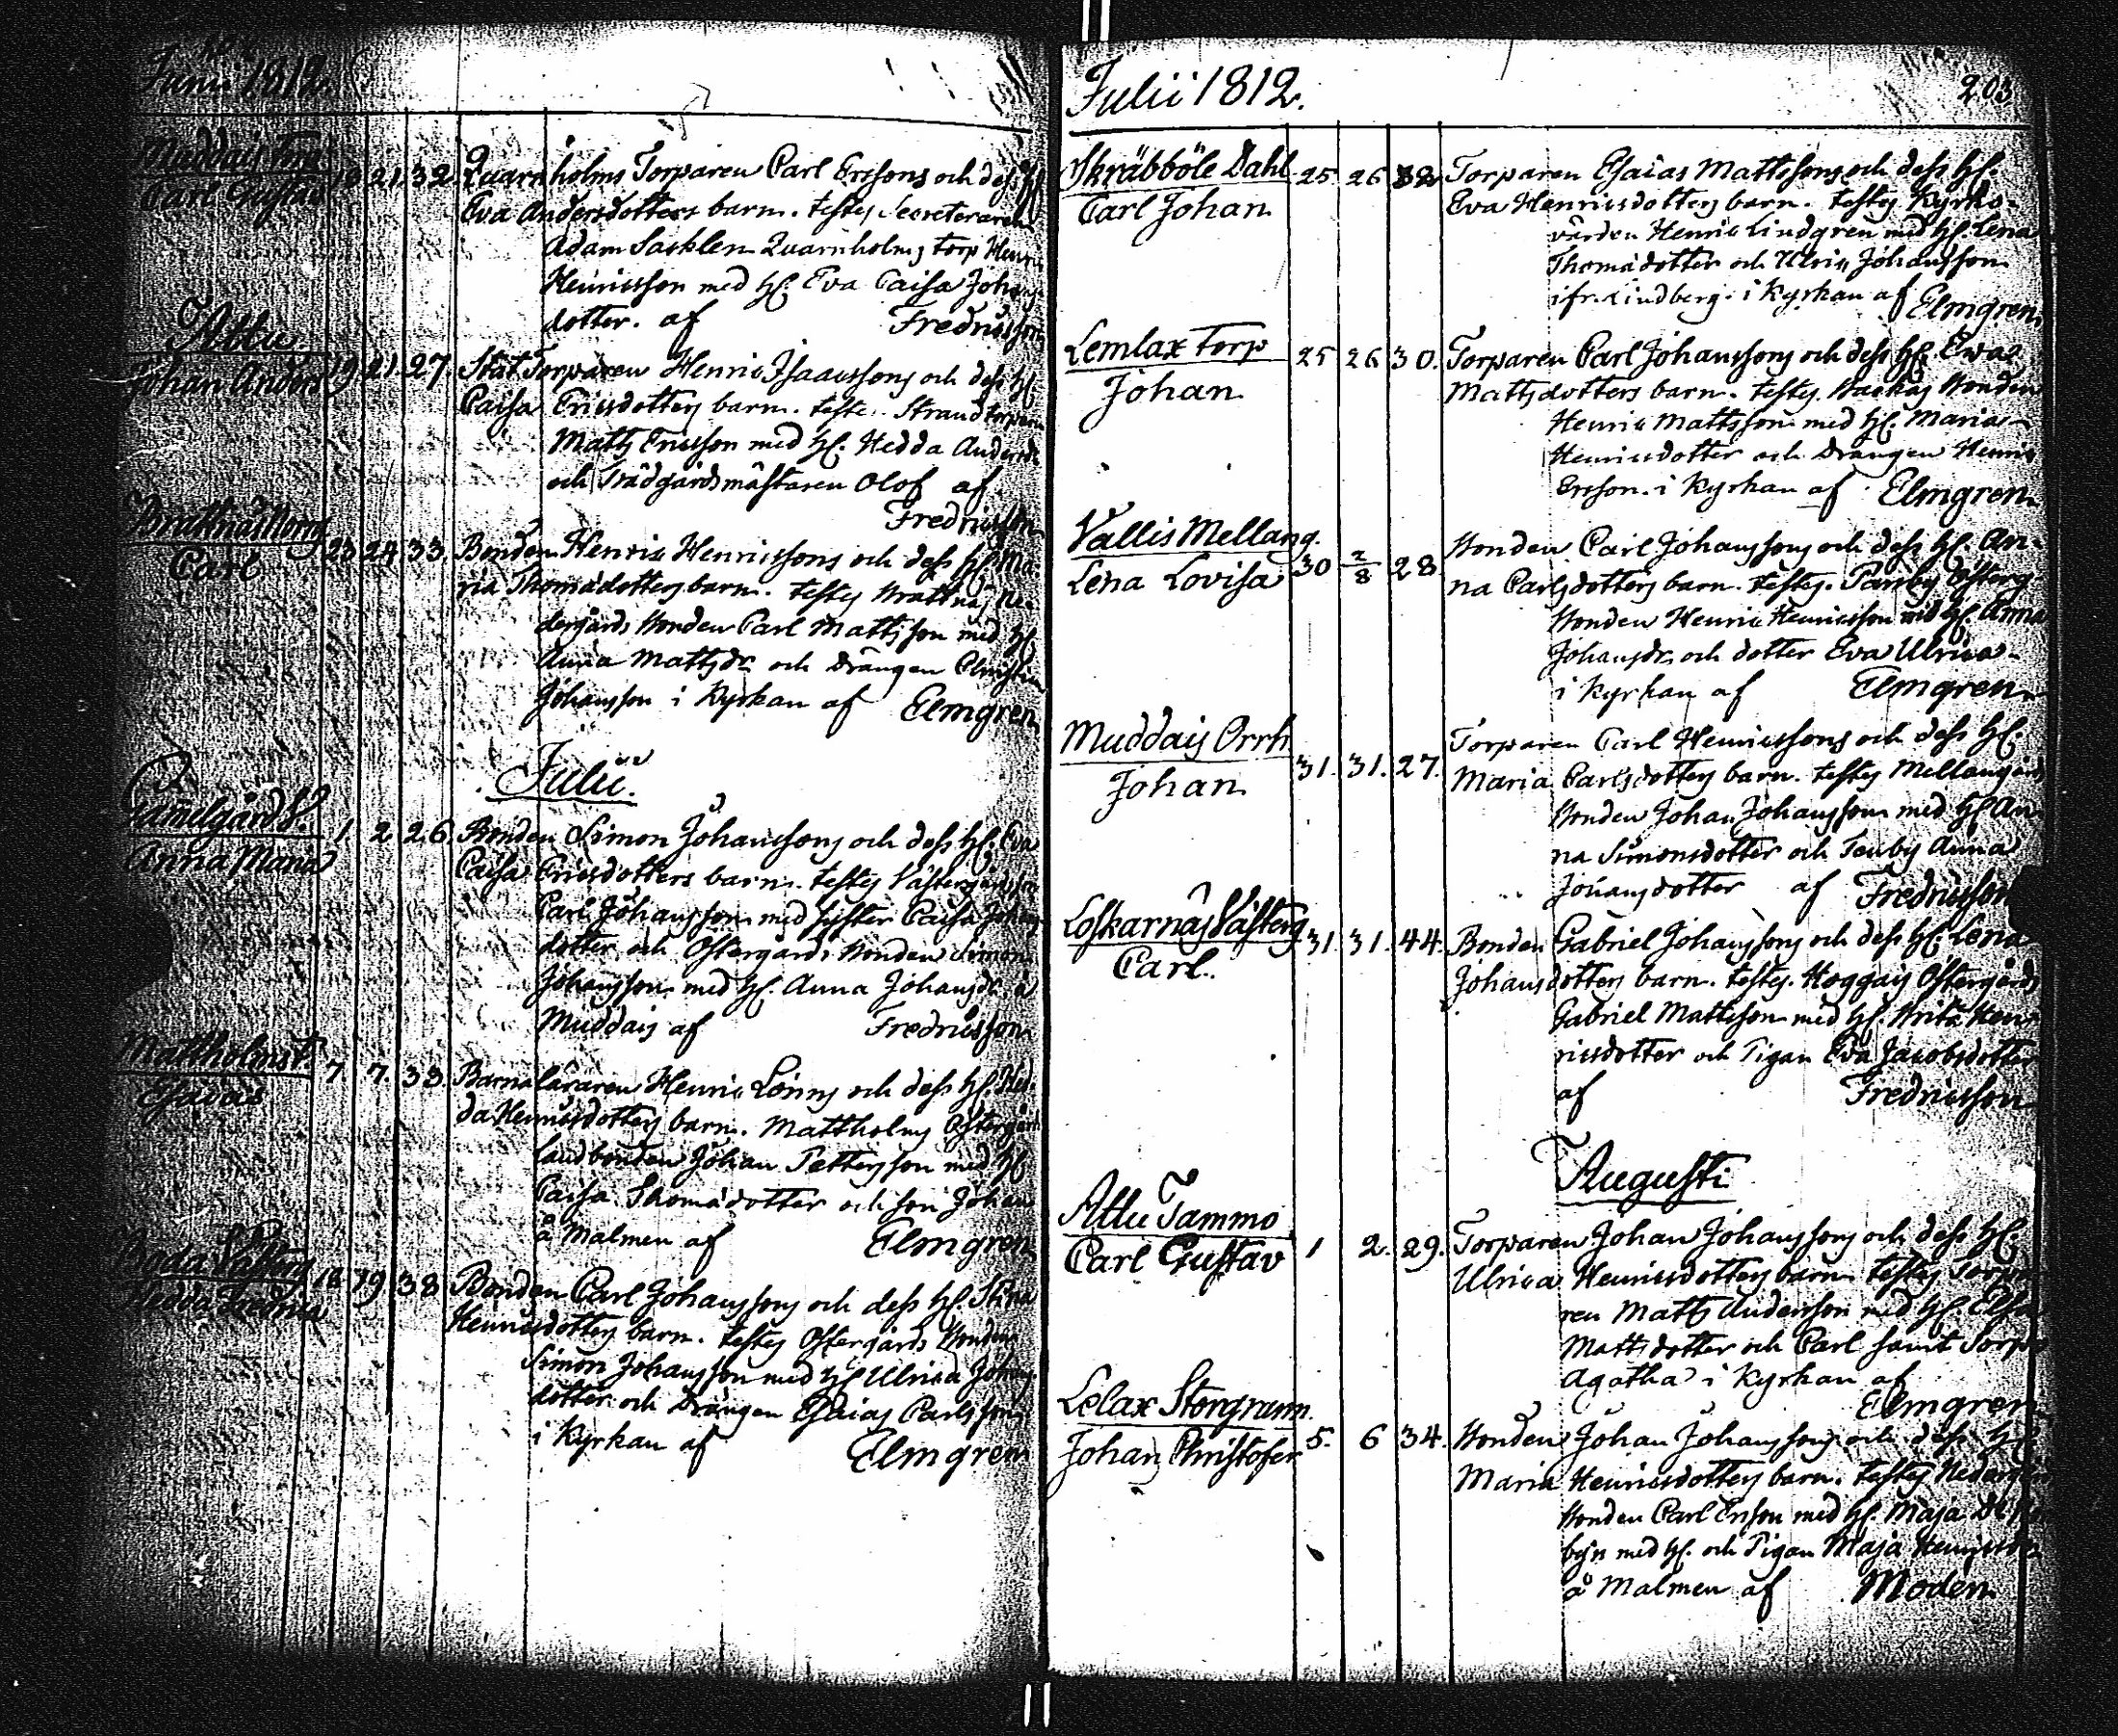 Junii 1812.
Muddais Torp
Carl Gustav
19 21. 32
Quarnholms Torparen Carl Erssons och dess H.
Eva Andersdotters barn. testes Secreteraren
Adam Sacklen Quarnholms torp Henric
Henricsson med H. Eva Caisa Johans
dotter. af Fredricsson
Attu
Johan Anders
19. 21. 27.
Stat Torparen Henric Isaacssons och dess H.
Caisa Ericsdotters barn. teste. Strandtorparen
Matts Ericsson med H. Hedda Andersdr
och Trädgårdsmästaren Olof af
Fredricsson
Brattnäs Norrg
Carl
23 24 33.
Bonden Henric Henricssons och dess H. Ma-
ria Thomädotters barn. testes Brattnäs Ne-
dergårds Bonden Carl Mattsson med H.
Anna Mattsdr och Drängen Christian
Johansson i Kyrkan af Elmgren
Julii.
Gamelgård
Anna Maria
1 2 26
Bonden Simon Johanssons och dess H. Eva
Caisa Ericsdotters barn. testes Västergårds
Carl Johansson med syster Caisa Johans
dotter och Östergårds Bonden Simon
Johansson med H. Anna Johansdr. å
Muddais af Fredricsson
Mattholms t.
Esaias
7 7. 33.
Barnaläraren Henric Lönns och dess H. Hed-
da Henricsdotters barn. Mattholms Östergårds
landbonden Johan Pettersson med H.
Caisa Thomädotter och son Johan
å Malmen af Elmgren
Boda Västerg
Hedda Lovisa
18 19 38
Bonden Carl Johanssons och dess H. Stina
Henricsdotters barn. testes Östergårds Bonden
Simon Johansson med H. Ulrica Johans-
dotter och Drängen Esaias Carlsson
i Kyrkan af Elmgren
Julii 1812.
203
Skräbböle Dahl
Carl Johan
25 26 32
Torparen Esaias Mattssons och dess H.
Eva Henricsdotters barn. testes Kyrko-
värden Henric Lindgren med H. Lena
Thomädotter och Ulric Johansson
ifr. Lindberg. i Kyrkan af Elmgren
Lemlax torp
Johan
25 26 30.
Torparen Carl Johanssons och dess H. Eva
Mattsdotters barn. testes. Backas Bonden
Henric Mattsson med H. Maria
Henricsdotter och Drängen Henric
Ersson. i Kyrkan af Elmgren
Vallis Mellang.
Lena Lovisa
30 2/8 28
Bonden Carl Johanssons och dess H. An-
na Carlsdotters barn. testes. Parsby Österg
Bonden Henric Henricsson med H. Anna
Johansdr och dotter Eva Ulrica
i Kyrkan af Elmgren
Muddais Orrh
Johan
31. 31. 27.
Torparen Carl Henricssons och dess H.
Maria Carlsdotters barn. testes Mellangårds
Bonden Johan Johansson med H. An
na Simonsdotter och Tenby Anna
Johansdotter af Fredricsson
Loskarnäs Västerg
Carl.
31. 31. 44.
Bonden Gabriel Johanssons och dess H. Lena
Johansdotters barn. testes. Hoggais Östergårds
Gabriel Mattsson med H. Brita Hen-
ricsdotter och Pigan Eva Jacobsdotter
af Fredricsson
Augusti
Attu Jammo
Carl Gustav
1 2. 29.
Torparen Johan Johanssons och dess H.
Ulrica Henricsdotters barn testes Torpa
ren Matts Andersson med H. Elsa
Mattsdotter och Carl samt Torp
Agatha i Kyrkan af
Elmgren
Lelax Storgrann.
Johan Christofer
5. 6 34.
Bonden Johan Johanssons och dess H.
Maria Henricsdotters barn. testes Nedergårds
Bonden Carl Ersson med H. Maja
byn med H. och Pigan Maja
å Malmen af Modén